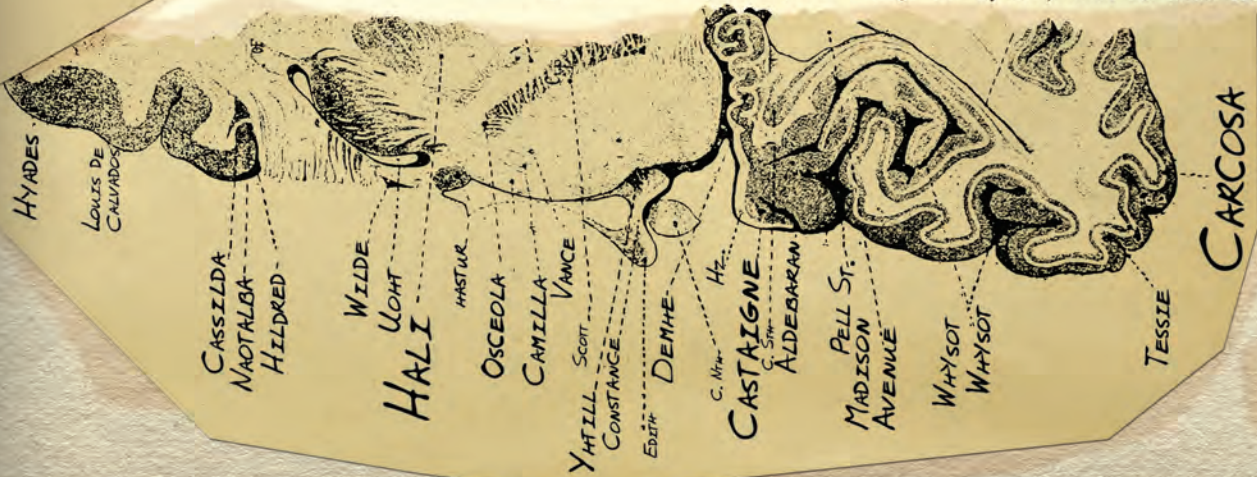 HYADES
LOUIS DE
CALVADOS
CASSILDA
NAOTALBA
HILDRED
WILDE
UOHT
HALI
HASTUR
OSCEOLA
CAMILLA
VANCE
SCOTT
YHTILL
CONSTANCE
EDITH
DEMHE
C. NTH.
HZ.
CASTAIGNE
C. STH.
ALDEBARAN
PELL ST.
MADISON
AVENUE
WHYSOT
WHYSOT
TESSIE
CARCOSA